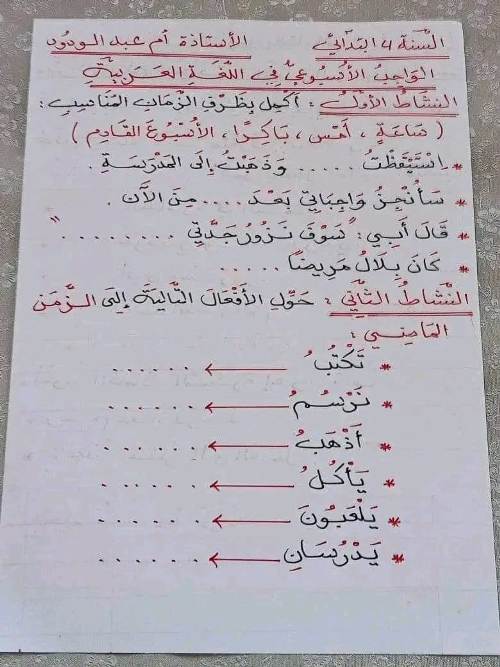 السَّنة 4 ابتدائي الأستاذة أم عبد الودود
الواجبُ الأُسبوعيُّ في اللُّغة العَربيّة
النّشاطُ الأوَّلُ : أكْمِل بِظَرْفِ الزَّمانِ المُناسِبِ :
( سَاعَةٍ ، أَمْسِ ، بَاكِرًا ، الأُسْبُوعَ القَادِمِ )
* اِسْتَيْقَظْتُ ..... وَذَهَبْتُ إِلَى المَدْرَسَةِ .
* سَأُنْجِزُ وَاجِبَاتِي بَعْدَ .... مِنَ الآن .
* قَالَ أَبِي : "سَوْفَ نَزُورُ جَدَّتِي ......... "
* كَانَ بِلَالُ مَرِيضًا .....
النَّشَاطُ الثَّانِي : حَوِّلِ الأَفْعَالَ التَّالِيَةَ إِلَى الزَّمَنِ
المَاضِي :
* تَكْتُبُ ← ......
* نَرْسُمُ ← ......
* أَذْهَبُ ← ......
* يَأْكُلُ ← ......
* يَلْعَبُونَ ← ......
* يَدْرُسَانِ ← ......